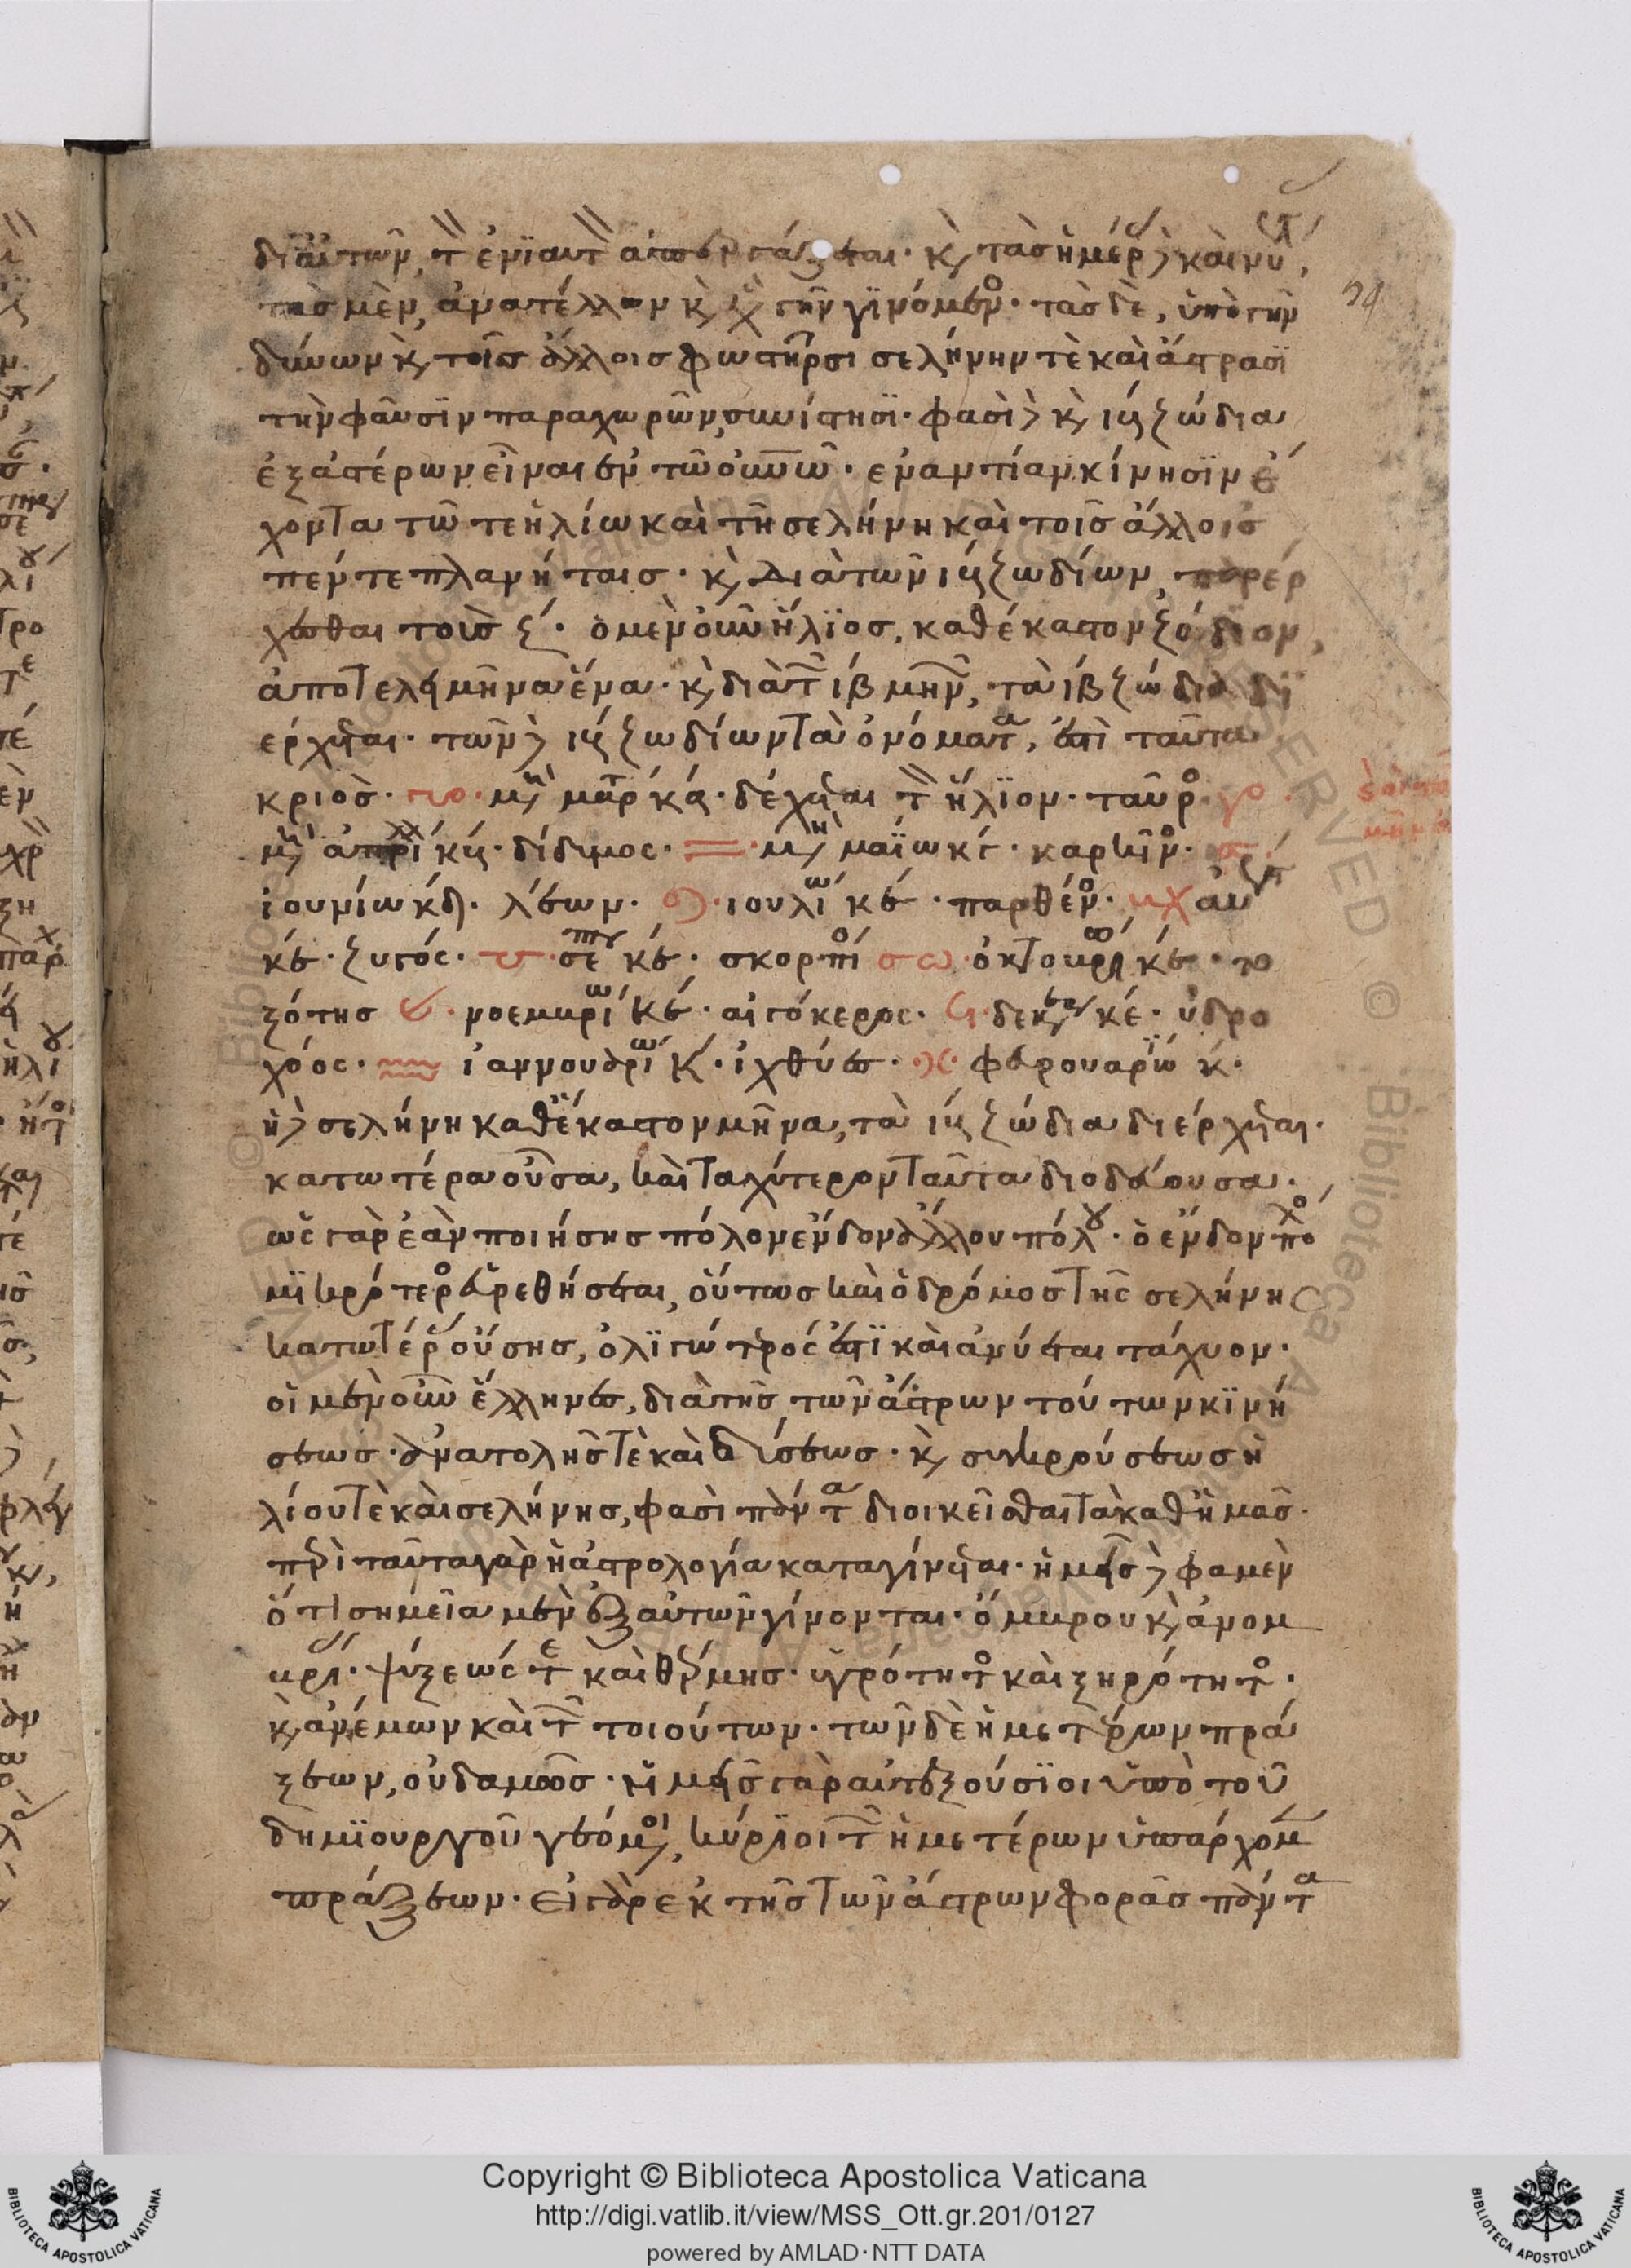 δι αὐτῶν, τ ἐνϊαυτ κ τὰς ἡμέρ καὶ νυ
τὰς μὲν, ἀνατέλλων κ γῆν γϊνόμεν· τὰς δὲ, ὑπὸ γῆν
δύνων κ, τοῖς ἄλλοις φωστῆρσι σελήνην τὲ καὶ ἄστρασϊ
τὴν φαῦσϊν παραχωρῶν, συνίστησϊ· φασὶ κ ιβ ζώδια
ἐξ ἀστέρων εἶναι ἐν τῶ οὐνῶ· εναντίαν κίνησϊν ἔ
χοντα τῶ τε ἡλίω καὶ τῆ σελήνη καὶ τοῖς ἄλλοις
πέντε πλανήταις· κ, διὰ τῶν ιβ ζωδίων, παρέρ
χεσθαι τοὺς ζ· ὁ μὲν οὖν ἥλϊος, καθέκαστον ζόδιον,
ἀποτελεῖ μῆνα ἕνα· κ, διὰ τ ιβ μην, τὰ ιβ ζώδια δϊ
έρχεται· τῶν ιβ ζωδίων τὰ ὀνόματα, ἐστὶ ταῦτα
κριὸς· μη μαρ κα· δέχεται τ ἥλϊον· ταῦρο
μη απρι κγ· δίδιμος· μη μαΐω κδ· καρκῖνο·
ἰουνίω κδ· λέων· ιουλίω κε· παρθένο· αυ
κε· ζυγός· σε κε· σκορπίο ὀκτουρίω κε· το
ξότης νοεμβρίω κε· αἰγόκερος· δεκε κε· ὑδρο
χόος· ἰαννουαρίω κ· ἰχθύες· φεβρουαρίω κ·
ἡ σελήνη καθέκαστον μῆνα, τὰ ιβ ζώδια διέρχεται·
κατωτέρα οὖσα, καὶ ταχύτερον ταῦτα διοδεύουσα·
ὡς γὰρ ἐὰν ποιήσης πόλον ἔνδον ἄλλου πόλου· ὁ ἔνδον πόλο
μϊκρότερο εὑρεθήσεται, οὕτως καὶ ὁ δρόμος τῆς σελήνης
κατωτέρ οὔσης, ὀλϊγώτρός ἐστϊ καὶ ἀνύεται τάχυον·
οἱ μὲν οὖν ἕλληνες, διὰ τῆς τῶν ἄστρων τούτων κϊνή
σεως· ἀνατολῆς τὲ καὶ δύσεως· κ, συγκρούσεως ἡ
λίου τὲ καὶ σελήνης, φασὶ πάντα διοικεῖσθαι τὰ καθ ἡμᾶς·
περὶ ταῦτα γὰρ ἡ ἀστρολογία καταγίνεται· ἡμεῖς φαμὲν
ὅτι σημεῖα μὲν ἐξ αὐτῶν γίνονται· ὄμβρου κ ἀνομ
βρί· ψύξεώς τε καὶ θέρμης· ὑγρότητο καὶ ξηρότητο·
κ, ἀνέμων καὶ τ τοιούτων· τῶν δὲ ἡμετέρων πρά
ξεων, οὐδαμῶς· ἡμεῖς γὰρ αὐτεξούσϊοι ὑπὸ τοῦ
δημϊουργοῦ γενόμ, κύρϊοι τ ἡμετέρων ὑπάρχομ
πράξεων· εἰ γὰρ ἐκ τῆς τῶν ἄστρων φορᾶς πάντα
Copyright © Biblioteca Apostolica Vaticana
http://digi.vatlib.it/view/MSS_Ott.gr.201/0127
powered by AMLAD·NTT DATA
BIBLIOTECA APOSTOLICA VATICANA
BIBLIOTECA APOSTOLICA VATICANA